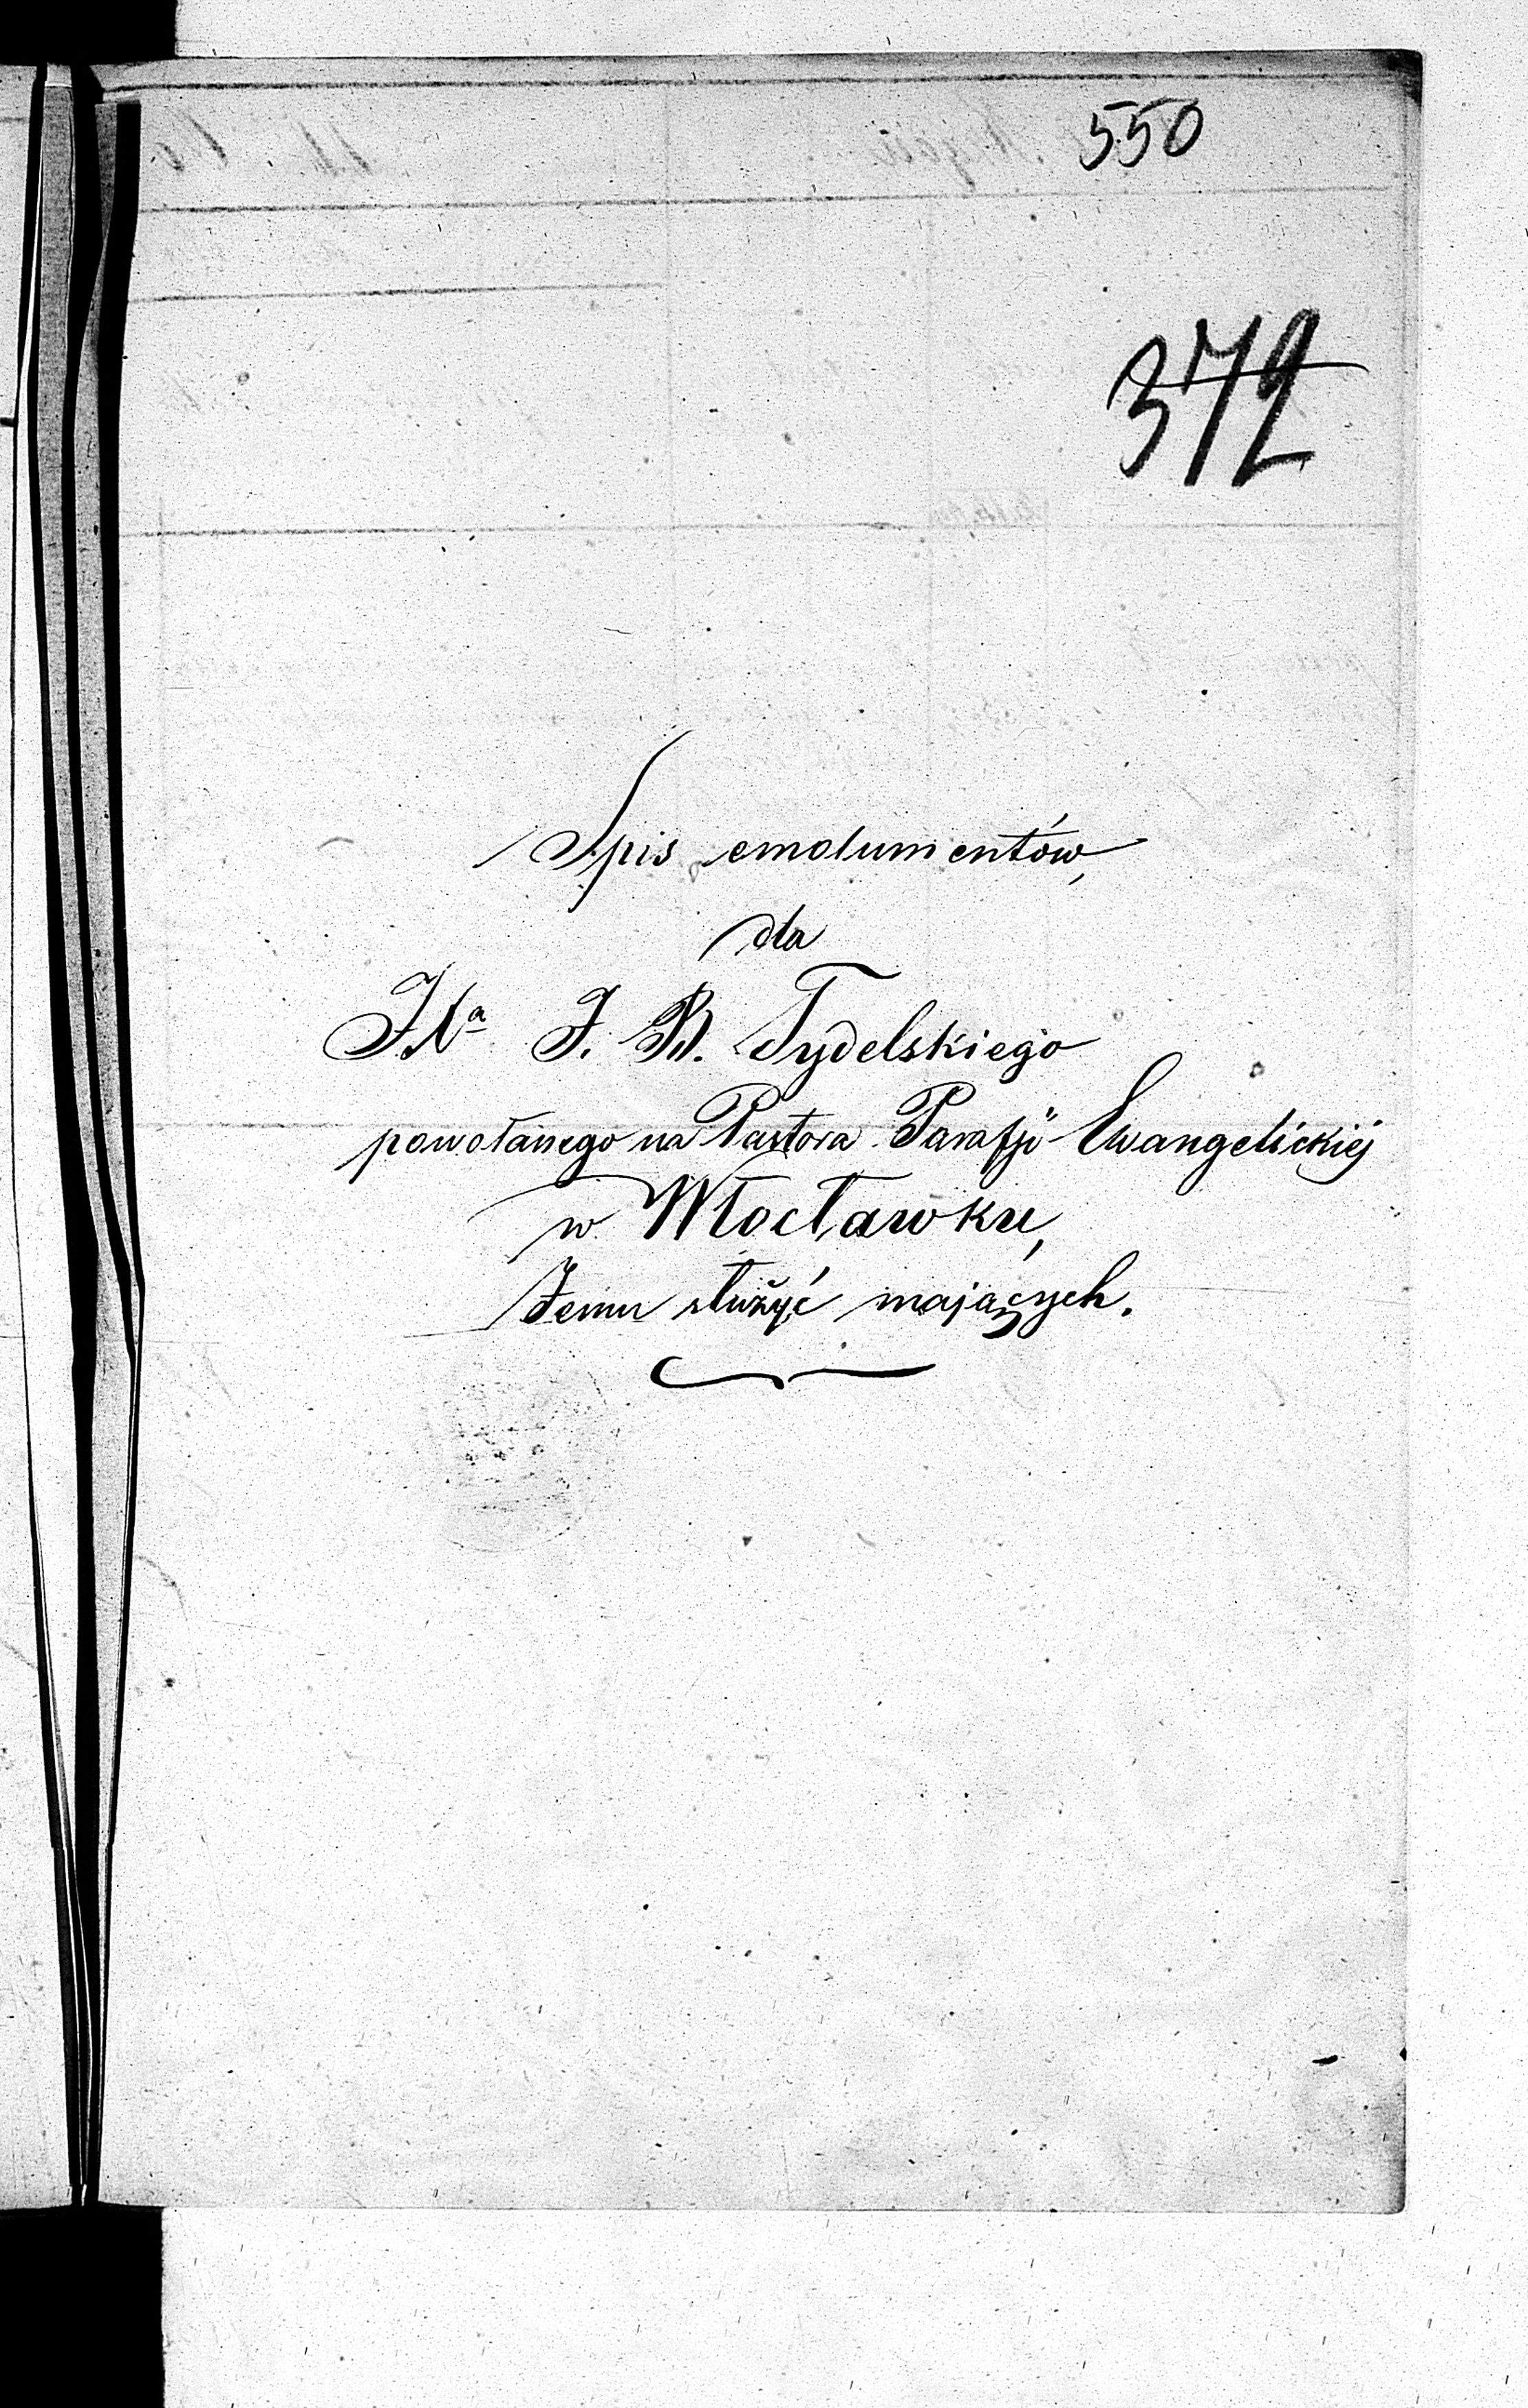 550
372
Spis emolumentów,
dla
JXa J. B. Tydelskiego
powołanego na Pastora Parafji Ewangelickiéj
w Włocławku,
Jemu służyć mających.